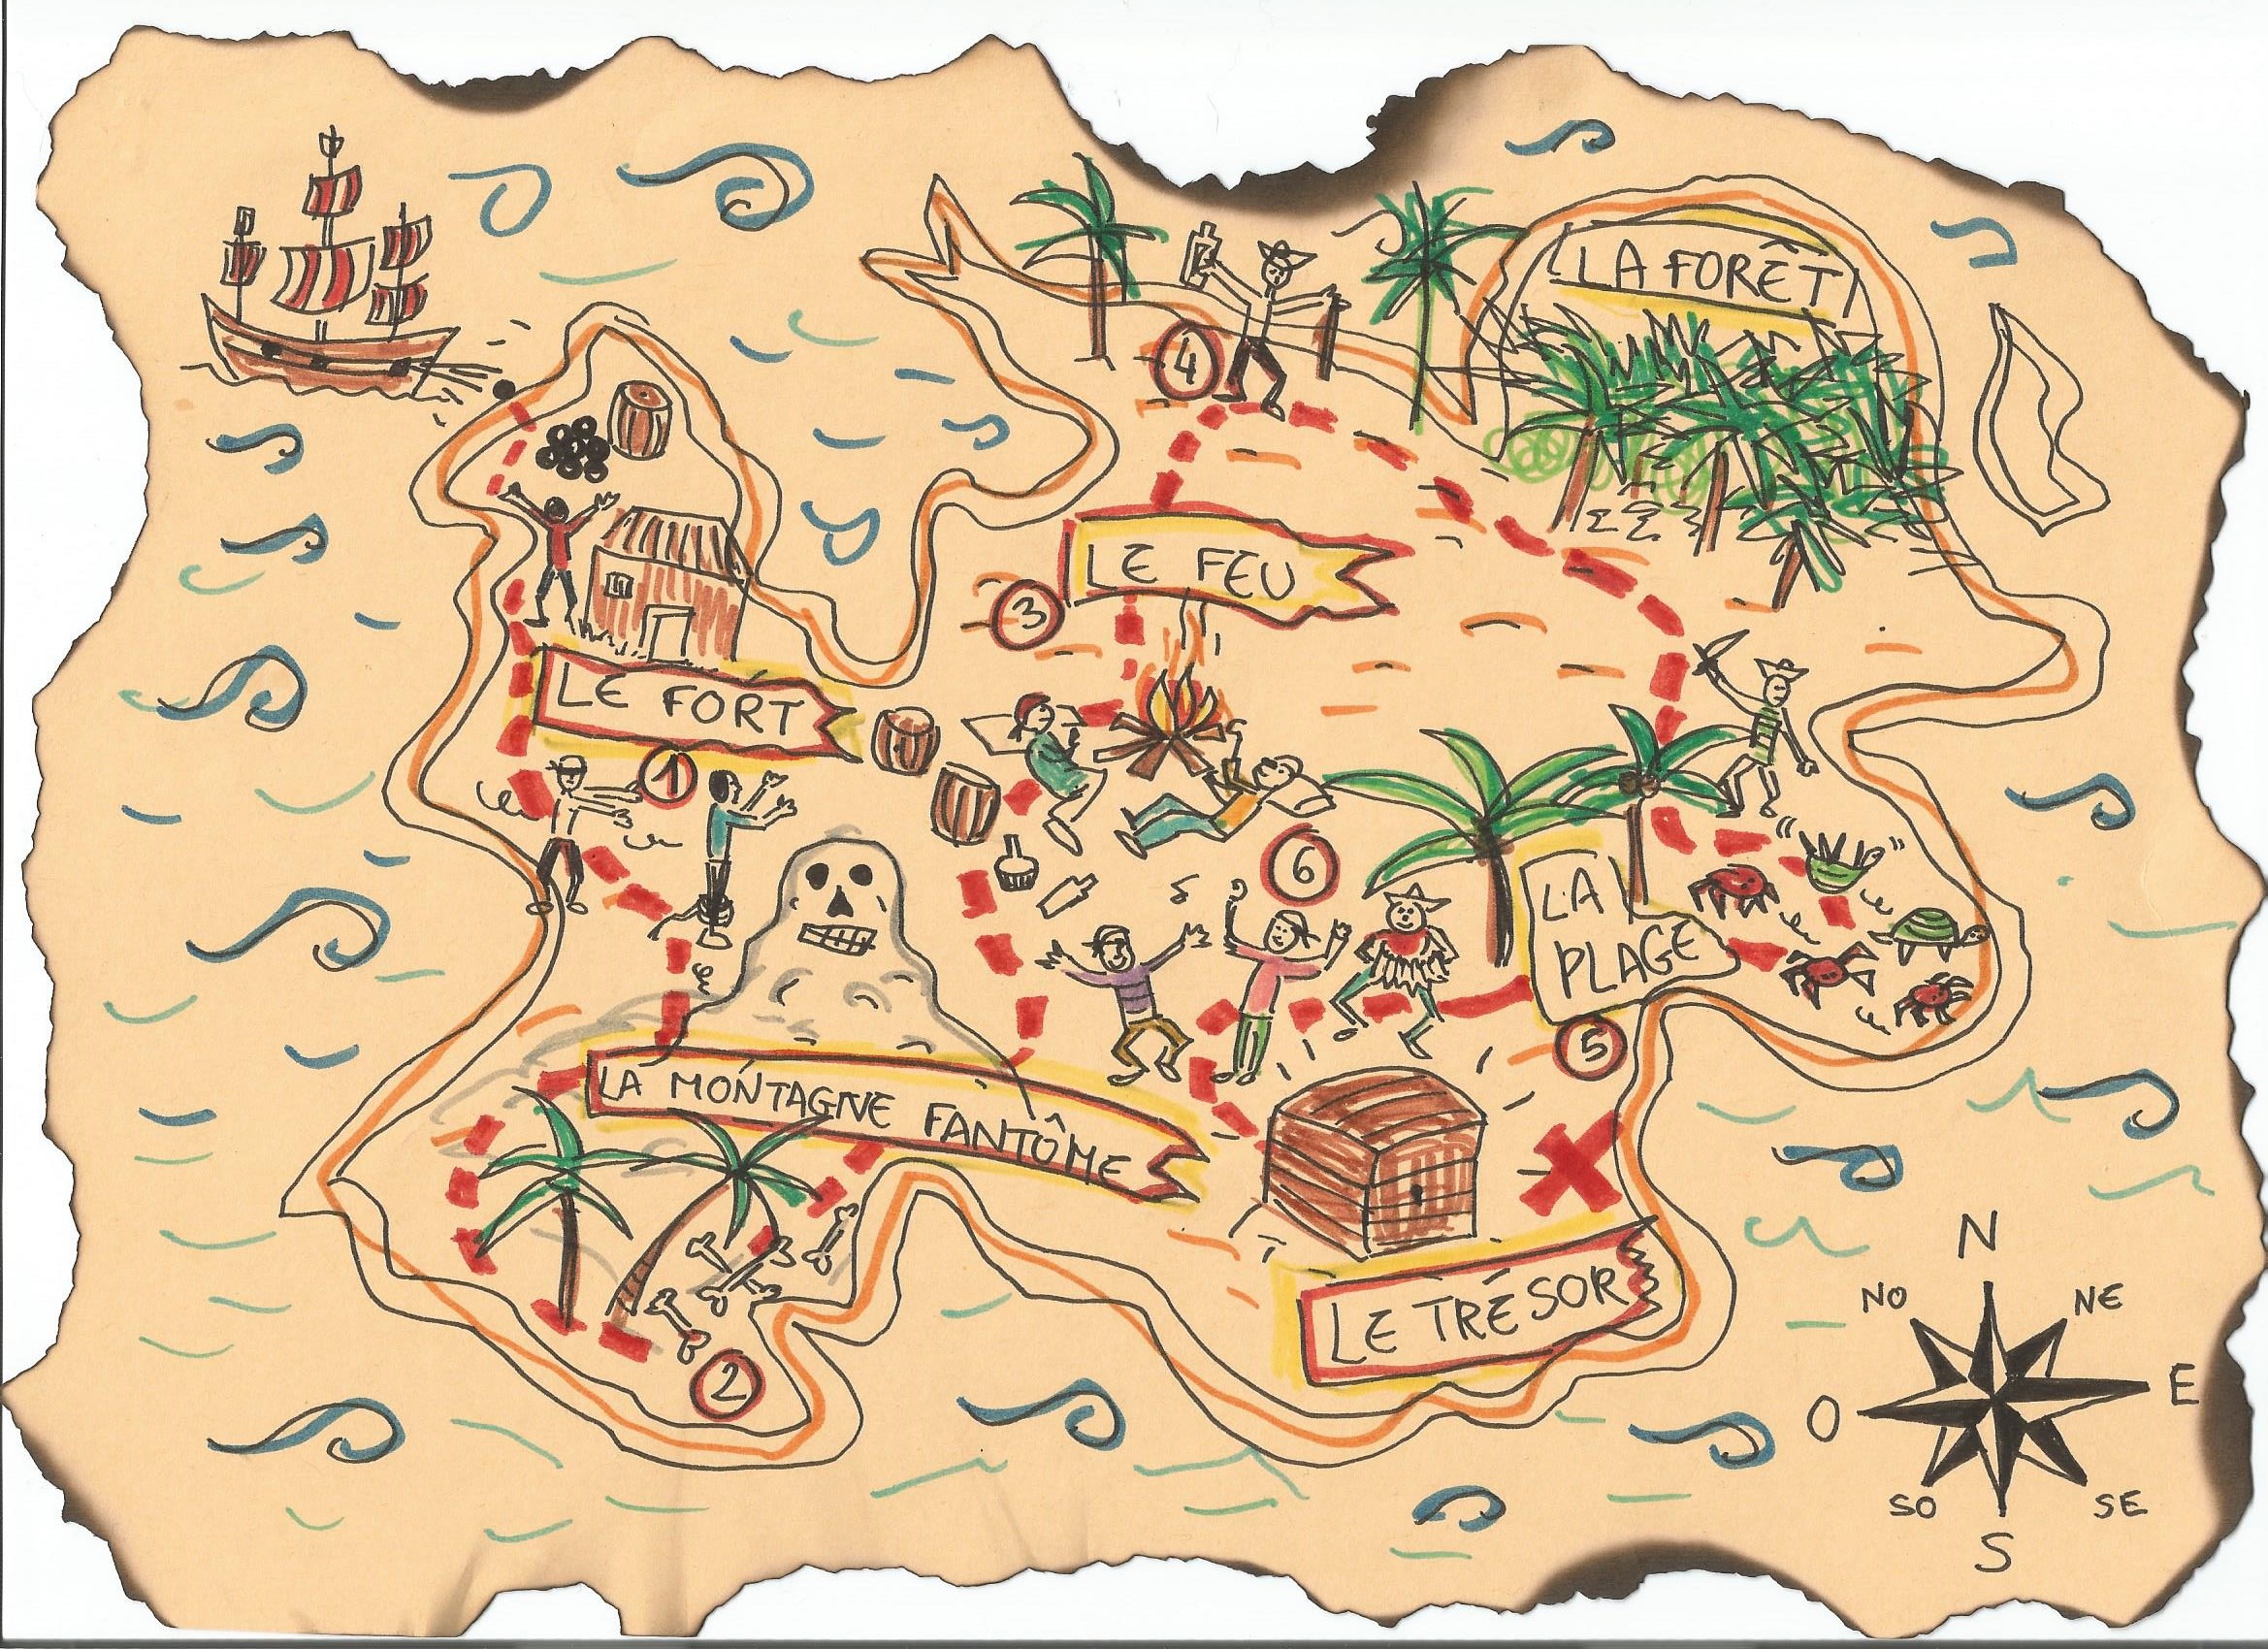 LA FORÊT
4
LE FEU
3
LE FORT
1
6
LA
PLAGE
5
LA MONTAGNE FANTÔME
2
LE TRÉSOR
N
NO
NE
E
O
SO
SE
S